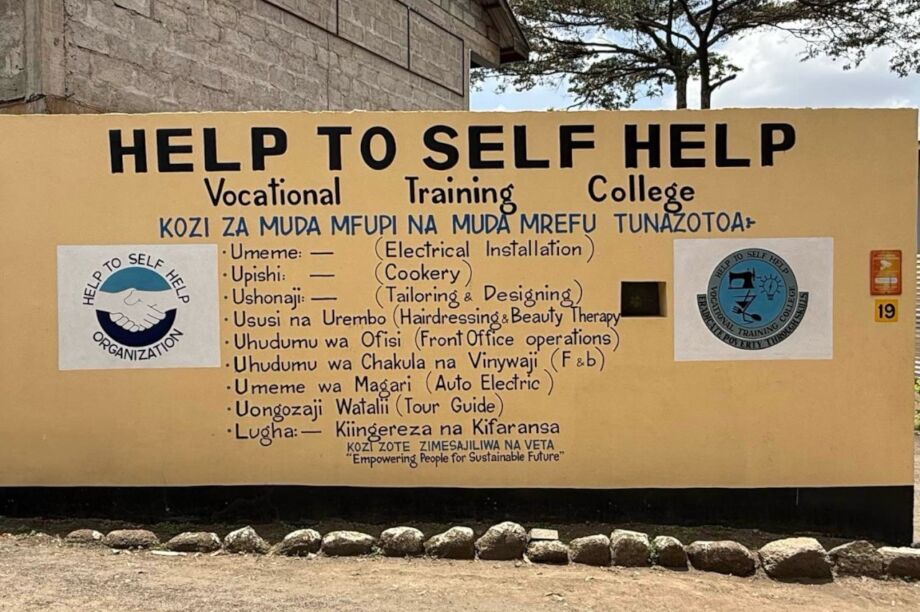 HELP TO SELF HELP
Vocational Training College
KOZI ZA MUDA MFUPI NA MUDA MREFU TUNAZOTOA:-
· Umeme: — (Electrical Installation)
· Upishi: — (Cookery)
· Ushonaji: — (Tailoring & Designing)
· Ususi na Urembo (Hairdressing & Beauty Therapy
· Uhudumu wa Ofisi (Front Office operations)
· Uhudumu wa Chakula na Vinywaji (F & b)
· Umeme wa Magari (Auto Electric)
· Uongozaji Watalii (Tour Guide)
· Lugha: — Kiingereza na Kifaransa
KOZI ZOTE ZIMESAJILIWA NA VETA
"Empowering People for Sustainable Future"
HELP TO SELF HELP
ORGANIZATION
HELP TO SELF HELP
VOCATIONAL TRAINING COLLEGE
ERADICATE POVERTY THROUGH SKILLS
19